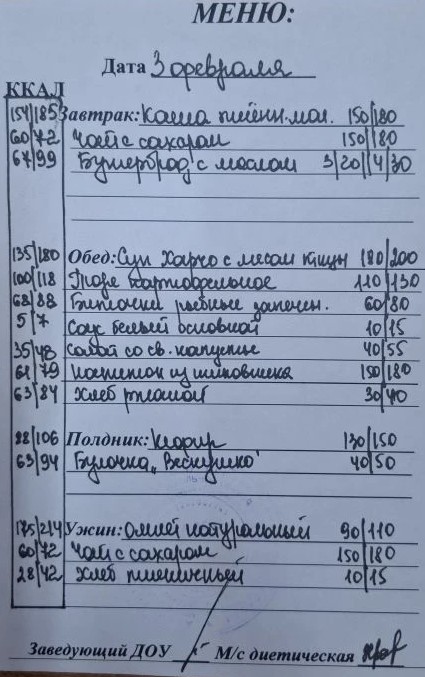 МЕНЮ:
Дата 3 февраля
ККАЛ
154/185 Завтрак: Каша пшенн. мол. 150/180
60/72 Чай с сахаром 150/180
67/99 Бутерброд с маслом 3/20/4/30
135/180 Обед: Суп Харчо с мясом птицы 180/200
100/118 Пюре картофельное 110/130
68/88 Биточки рыбные запечен. 60/80
5/7 Соус белый основной 10/15
35/48 Салат со св. капусты 40/55
61/79 Напиток из шиповника 150/180
63/84 Хлеб ржаной 30/40
88/106 Полдник: Кефир 130/150
63/94 Булочка „Веснушка" 40/50
175/214 Ужин: Омлет натуральный 90/110
60/72 Чай с сахаром 150/180
28/42 Хлеб пшеничный 10/15
Заведующий ДОУ М/с диетическая